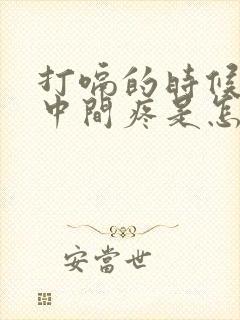 打嗝的時候
中間疼是怎
安當世